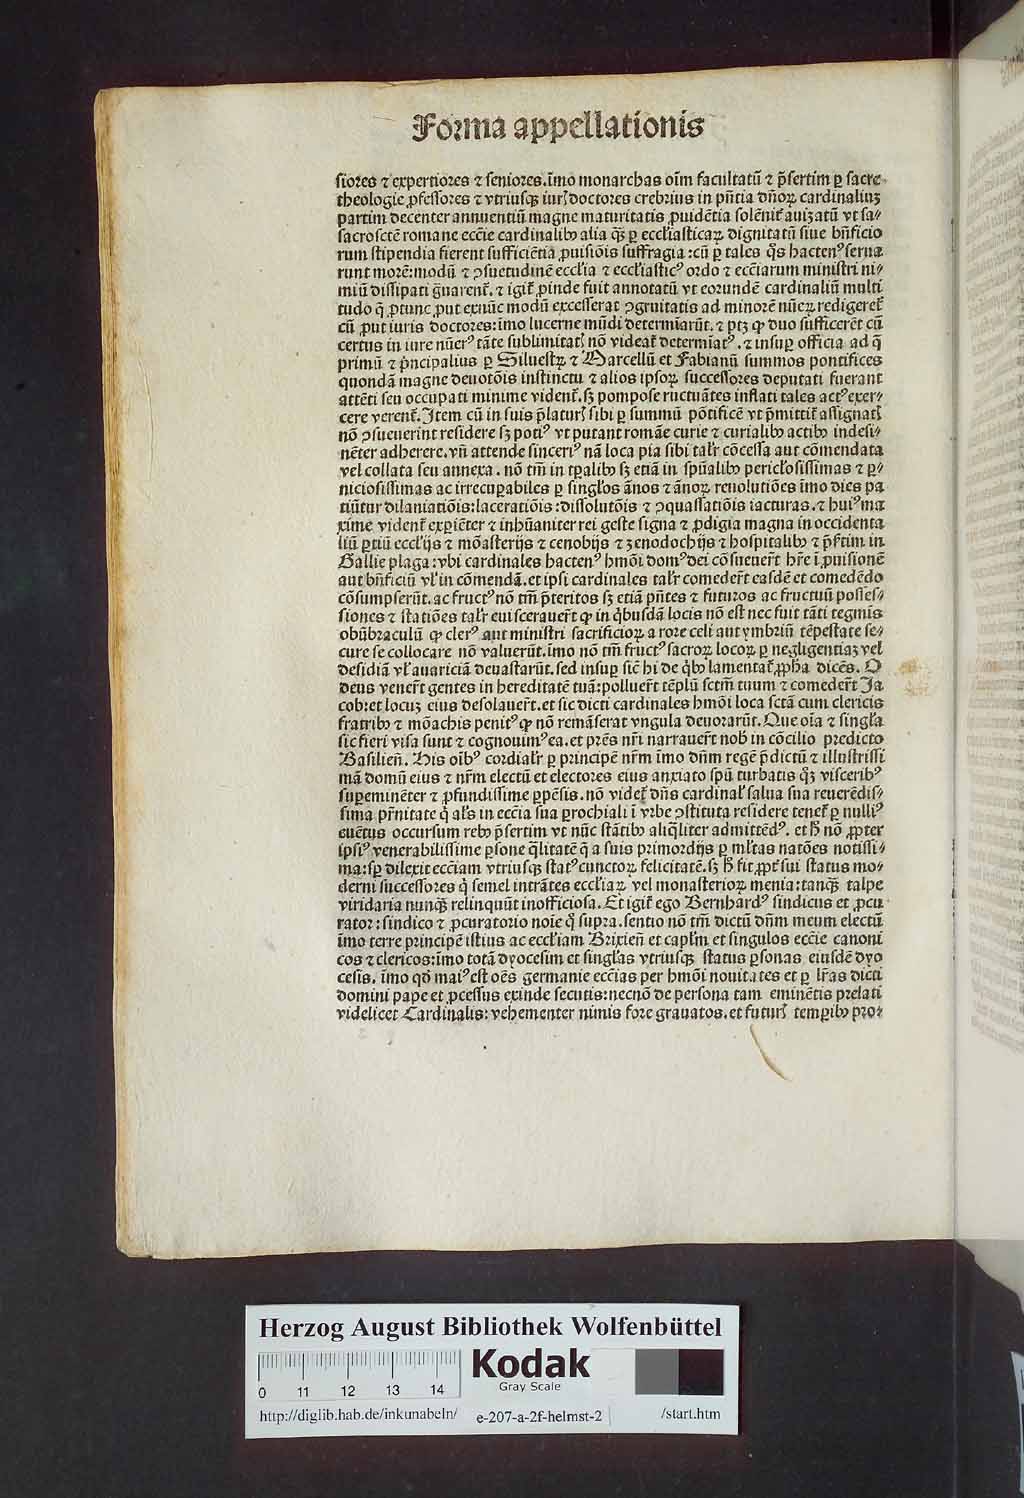 Forma appellationis
siores ⁊ expertiores ⁊ seniores. īmo monarchas oīm facultatū ⁊ p̄sertim ꝑ sacre
theologie ꝓfessores ⁊ vtriusqꝫ iurꝭ doctores crebrius in pn̄tia dn̄oꝝ cardinaliuꝫ
partim decenter annuentiū magne maturitatis ꝓuidētia solēnit̄ auizatū vt sa⸗
sacrosctē romane ecc̄ie cardinalibꝰ alia qͣꝫ ꝑ eccl̄iasticaꝝ dignitatū siue bn̄ficio
rum stipendia fierent sufficiētia ꝓuisiōis suffragia : cū ꝑ tales qͦs hactenꝰ serua
runt morē: modū ⁊ ꝯsuetudinē eccl̄ia ⁊ eccl̄iasticꝰ ordo ⁊ ecc̄iarum ministri ni⸗
miū dissipati gͣuarent̄. ⁊ igit̄ ꝓinde fuit annotatū vt eorundē cardinaliū multi
tudo q̄ ꝓtunc ꝓut exnūc modū excesserat ꝯgruitatis ad minorē nūeꝝ redigeret̄
cū ꝓut iuris doctores: īmo lucerne mūdi determīarūt. ⁊ ptꝫ ꝙ duo sufficerēt cū
certus in iure nūerꝰ tāte sublimitatꝭ nō videat̄ determīatꝰ. ⁊ insuꝑ officia ad q̄
primū ⁊ pͥncipalius ꝑ Siluestꝝ ⁊ Marcellū et Fabianū summos pontifices
quondā magne deuotōis instinctu ⁊ alios ipsoꝝ successores deputati fuerant
attēti seu occupati minime vident̄. sꝫ pompose ructuātes inflati tales actꝰ exer⸗
cere verent̄. Item cū in suis p̄laturꝭ sibi ꝑ summū pōtificē vt p̄mittit̄ assignatꝭ
nō ꝯsueuerint residere sꝫ potiꝰ vt putant romāe curie ⁊ curialibꝰ actibꝰ indesi⸗
nēter adherere. vn̄ attende sinceriꝰ nā loca pia sibi talr̄ cōcessa aut cōmendata
vel collata seu annexa. nō tm̄ in tꝑalibꝰ sꝫ etiā in spūalibꝰ pericl̄osissimas ⁊ ꝑ⸗
niciosissimas ac irrecuꝑabiles ꝑ singl̄os ānos ⁊ ānoꝝ reuolutiōes īmo dies pa
tiūtur dilaniatiōis: laceratiōis : dissolutōis ⁊ ꝯquassatiōis iacturas. ⁊ huiꝰ ma
xime vident̄ exꝑiēter ⁊ inhūaniter rei geste signa ⁊ ꝓdigia magna in occidenta
liū ꝑtiū eccl̄ijs ⁊ mōasterijs ⁊ cenobijs ⁊ zenodochijs ⁊ hospitalibꝰ ⁊ p̄sertim in
Gallie plaga : vbi cardinales hactenꝰ hm̄oi domꝰ dei cōsueuer̄t hr̄e ī ꝓuisionē
aut bn̄ficiū vl̓ in cōmendā. et ipsi cardinales talr̄ comeder̄t easdē et comedēdo
cōsumpserūt. ac fructꝰ nō tm̄ p̄teritos sꝫ etiā pn̄tes ⁊ futuros ac fructuū posses⸗
siones ⁊ statiōes talr̄ euiscerauer̄t ꝙ in qͥbusdā locis nō est nec fuit tāti tegmīs
obūbraculū ꝙ clerꝰ aut ministri sacrificioꝝ a rore celi aut ymbriū tēpestate se⸗
cure se collocare nō valuerūt. īmo nō tm̄ fructꝰ sacroꝝ locoꝝ ꝑ negligentiaꝫ vel
desidiā vl̓ auariciā deuastarūt. sed insuꝑ sic̄ hi de qͥbꝰ lamentat̄ ꝓpha dicēs. O
deus vener̄t gentes in hereditatē tuā: polluer̄t tēplū sctm̄ tuum ⁊ comeder̄t Ja
cob: et locuꝫ eius desolauer̄t. et sic dicti cardinales hm̄oi loca sctā cum clericis
fratribꝰ ⁊ mōachis penitꝰ ꝙ nō remāserat vngula deuorarūt. Que oīa ⁊ singl̄a
sic fieri visa sunt ⁊ cognouimꝰ ea. et pr̄es nr̄i narrauer̄t nob̄ in cōcilio predicto
Basilien̄. His oībꝰ cordialr̄ ꝑ principē nr̄m īmo dn̄m regē p̄dictū ⁊ illustrissi
mā domū eius ⁊ nr̄m electū et electores eius anxiato spū turbatis qͣꝫ visceribꝰ
suꝑeminēter ⁊ ꝓfundissime ꝑpēsis. nō videt̄ dn̄s cardinal̄ salua sua reuerēdis⸗
sima pr̄nitate qͥ al̄s in ecc̄ia sua ꝑrochiali ī vrbe ꝯstituta residere tenet̄ ꝑ nulliꝰ
euētus occursum rebꝰ p̄sertim vt nūc stātibꝰ aliqͣliter admittēdꝰ. et h̄ nō ꝓpter
ipsiꝰ venerabilissime ꝑsone qͣlitatē q̄ a suis primordijs ꝑ ml̄tas natōes notissi⸗
ma: sꝑ dilexit ecc̄iam vtriusqꝫ statꝰ cunctoꝝ felicitatē. sꝫ h̄ fit ꝓpt̄ sui status mo⸗
derni successores qͥ semel intrātes eccl̄iaꝝ vel monasterioꝝ menia : tanqͣꝫ talpe
viridaria nunqͣꝫ relinquūt inofficiosa. Et igit̄ ego Bernhardꝰ sindicus et ꝓcu
rator : sindico ⁊ ꝓcuratorio noīe qͦ supra. sentio nō tm̄ dictū dn̄m meum electū
īmo terre principē istius ac eccl̄iam Brixien̄ et capl̄m et singulos ecc̄ie canoni
cos ⁊ clericos: īmo totā dyocesim et singl̄as vtriusqꝫ status ꝑsonas eiusdē dyo
cesis. īmo qd̓ maiꝰ est oēs germanie ecc̄ias per hm̄oi nouitates et ꝑ lr̄as dicti
domini pape et ꝓcessus exinde secutis: necnō de persona tam eminētis prelati
videlicet Cardinalis: vehementer nimis fore grauatos. et futurꝭ tempꝑibꝰ pro⸗
Herzog August Bibliothek Wolfenbüttel
Kodak
Gray Scale
0 11 12 13 14
http://diglib.hab.de/inkunabeln/ e-207-a-2f-helmst-2 /start.htm